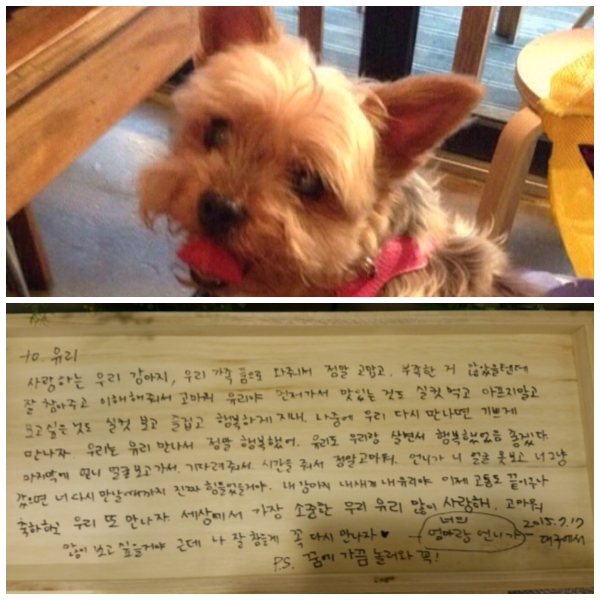 to. 유리
사랑하는 우리 강아지, 우리 가족 품으로 와줘서 정말 고맙고. 부족한 거 많았을텐데
잘 참아주고 이해해줘서 고마워 유리야 먼저가서 맛있는 것도 실컷 먹고 아프지말고
보고싶은것도 실컷 보고 즐겁고 행복하게 지내. 나중에 우리 다시 만나면 기쁘게
만나자. 우리는 유리 만나서 정말 행복했어. 유리도 우리랑 살면서 행복했었음 좋겠다.
마지막에 언니 얼굴보고가서, 기다려줘서, 시간을 줘서 정말고마워. 언니가 니 얼굴 못보고 너 그냥
갔으면 너 다시 만날때까지 진짜 힘들었을거야. 내 강아지 내새끼 내 유리야. 이제 고통도 끝이구나
축하하고 우리 또 만나자. 세상에서 가장 소중한 우리 유리 많이 사랑해. 고마워
많이 보고 싶을거야 근데 나 잘 참을게 꼭 다시 만나자♥ 너의 엄마랑 언니가 2015.7.17 대구에서
P.S. 꿈에 가끔 놀러와 꼭!